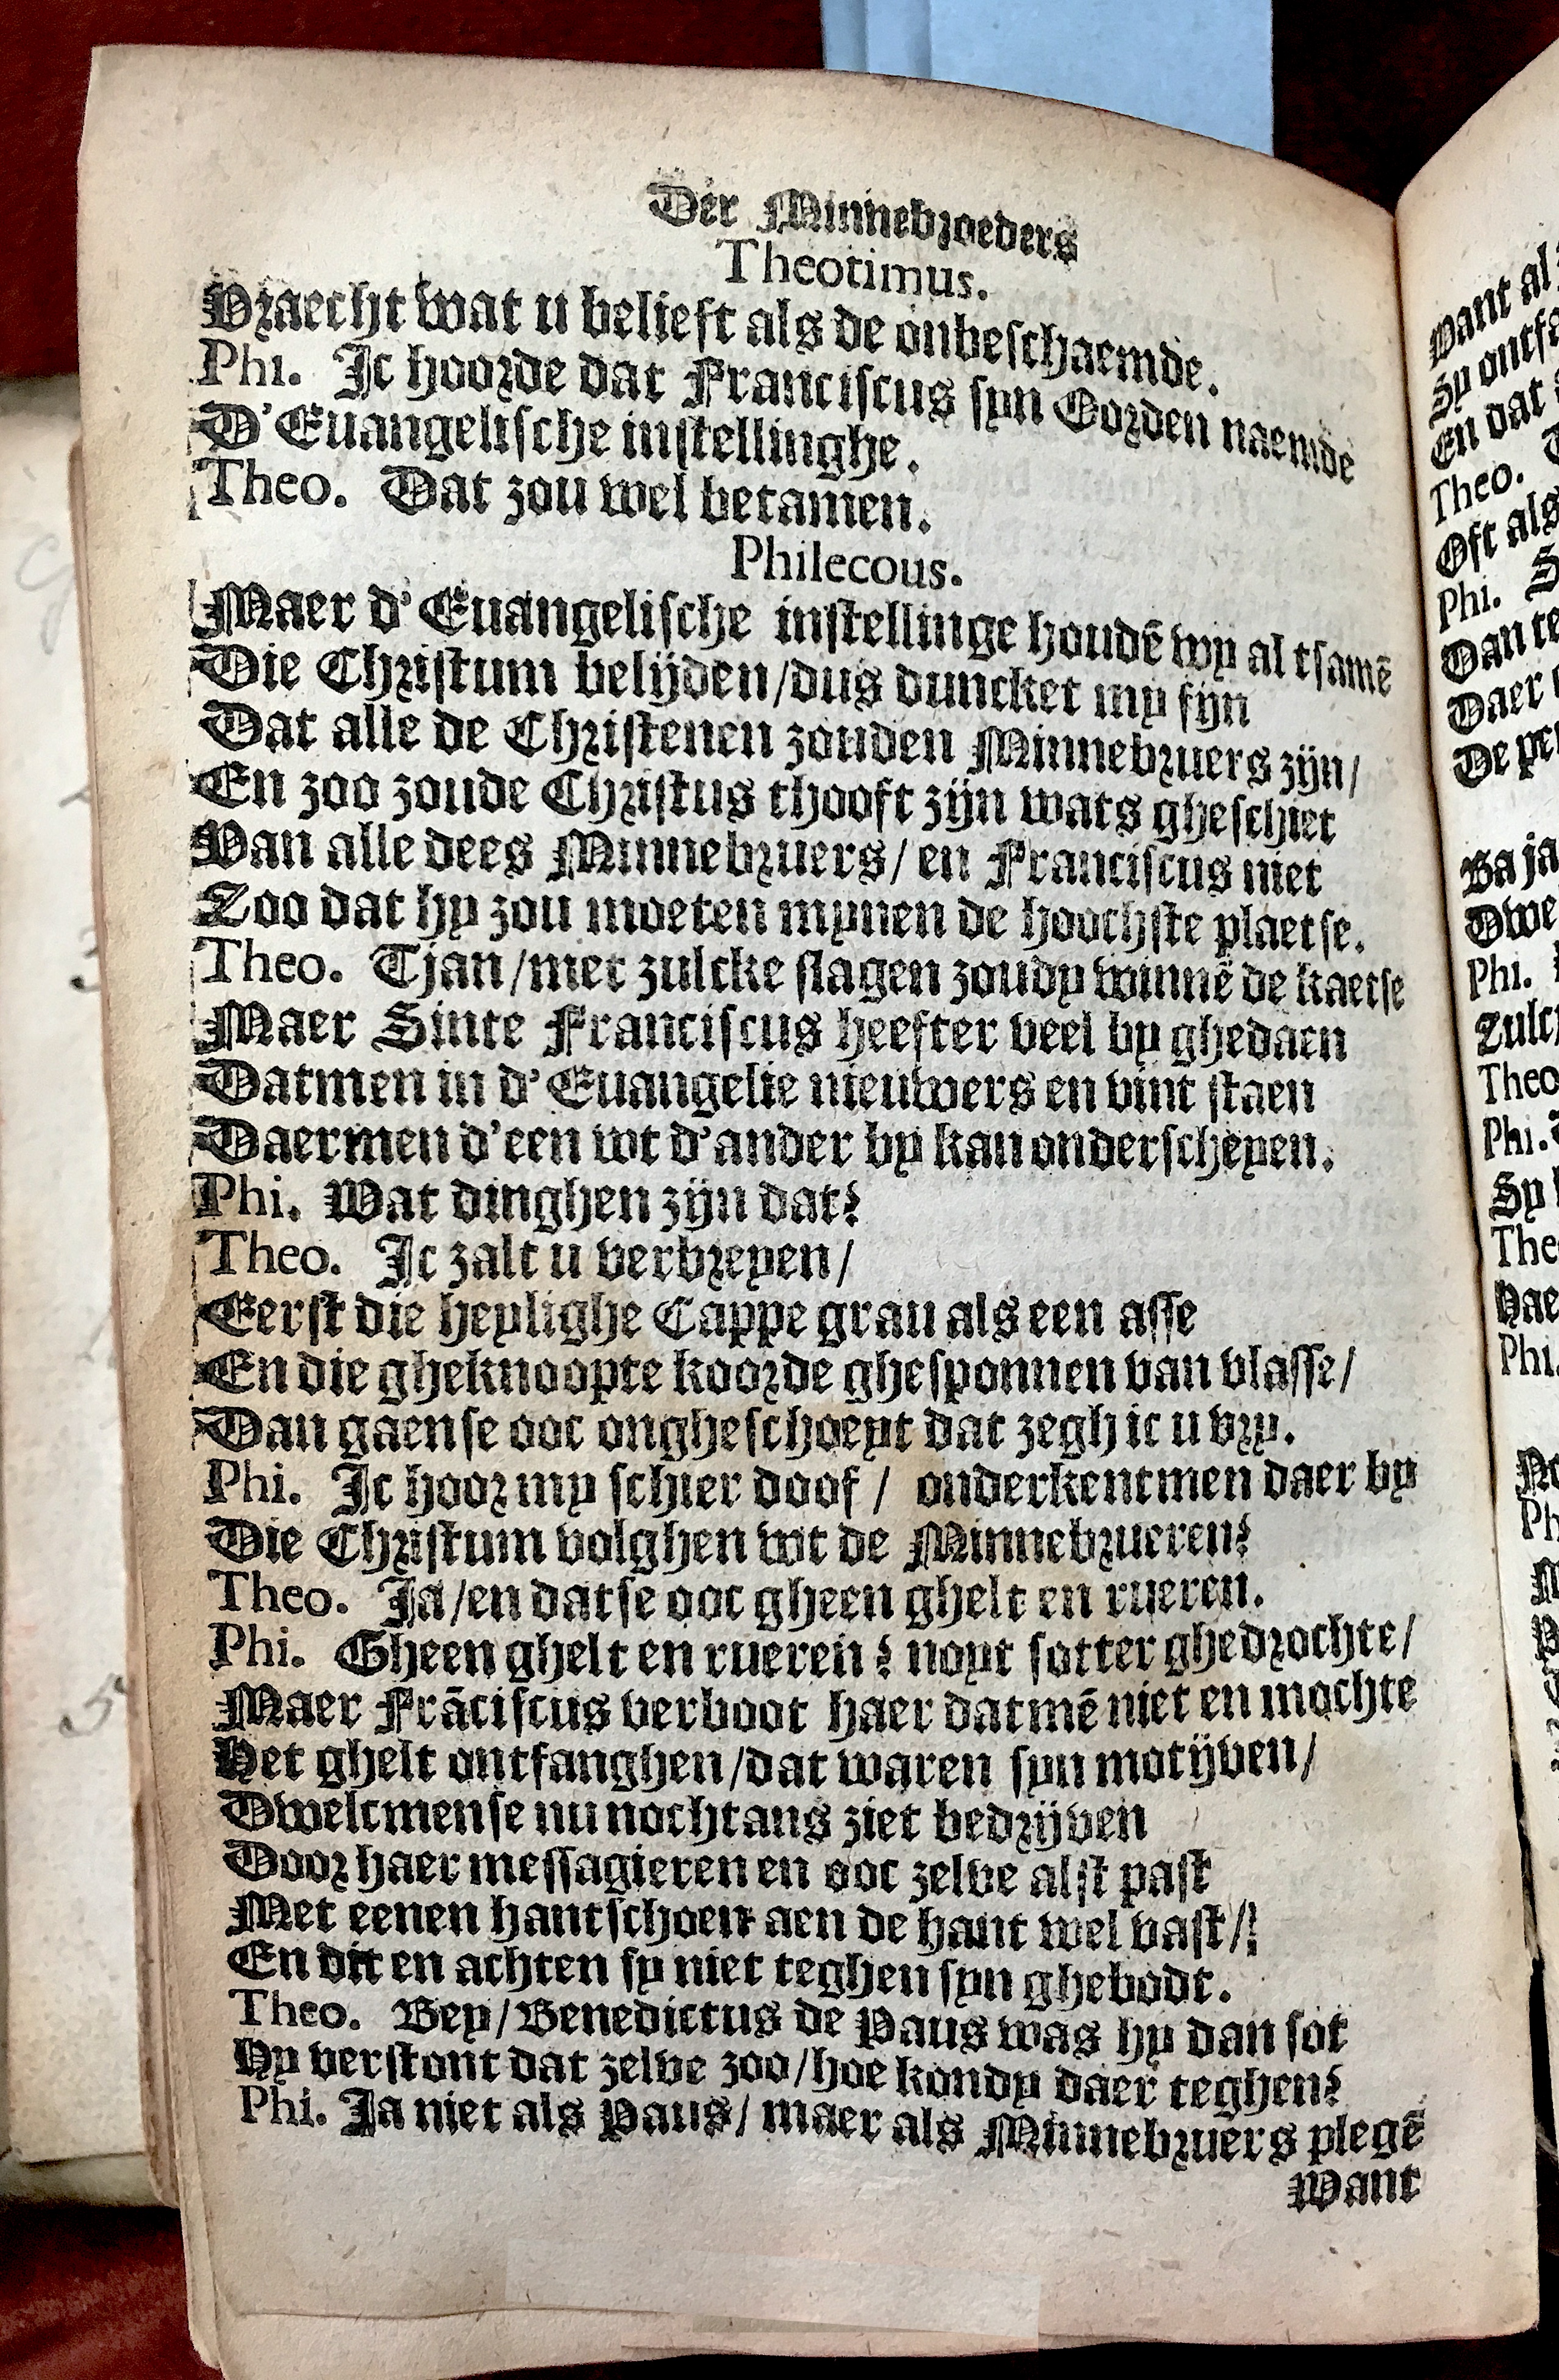 Der Minnebroeders
Theotimus.
Vraecht wat u belieft als de onbeschaemde.
Phi. Ic hoorde dat Franciscus syn Oorden naemde
D'Euangelische instellinghe.
Theo. Dat zou wel betamen.
Philecous.
Maer d'Euangelische instellinge houdē wy al tsamē
Die Christum belijden/dus duncket my fijn
Dat alle de Christenen zouden Minnebruers zijn/
En zoo zoude Christus thooft zijn wats gheschiet
Van alle dees Minnebruers/en Franciscus niet
Zoo dat hy zou moeten mynen de hoochste plaetse.
Theo. Tjan/met zulcke slagen zoudy winnē de kaetse
Maer Sinte Franciscus heefter veel by ghedaen
Datmen in d'Euangelie nieuwers en vint staen
Daermen d'een wt d'ander by kan onderscheyen.
Phi. Wat dinghen zijn dat?
Theo. Ic zalt u verbreyen/
Eerst die heylighe Cappe grau als een asse
En die gheknoopte koorde ghesponnen van vlasse/
Dan gaense ooc ongheschoeyt dat zegh ic u vry.
Phi. Ic hoor my schier doof/ onderkentmen daer by
Die Christum volghen wt de Minnebrueren?
Theo. Ja/en datse ooc gheen ghelt en rueren.
Phi. Gheen ghelt en rueren? noyt sotter ghedrochte/
Maer Frāciscus verboot haer datmē niet en mochte
Het ghelt ontfanghen/dat waren syn motijven/
Twelcmense nu nochtans ziet bedrijven
Door haer messagieren en ooc zelve alst past
Met eenen hantschoen aen de hant wel vast/
En dit en achten sy niet teghen syn ghebodt.
Theo. Bey/Benedictus de Paus was hy dan sot
Hy verstont dat zelve zoo/hoe kondy daer teghen?
Phi. Ja niet als Paus/maer als Minnebruers plegē
Want

want al
Sy ontfa
En dat
Theo.
Oft als
Phi. S
Dan te
Daer
De per
Ba ja
Phi.
Theo
Phi.
Sy
The
Phi.
Ph